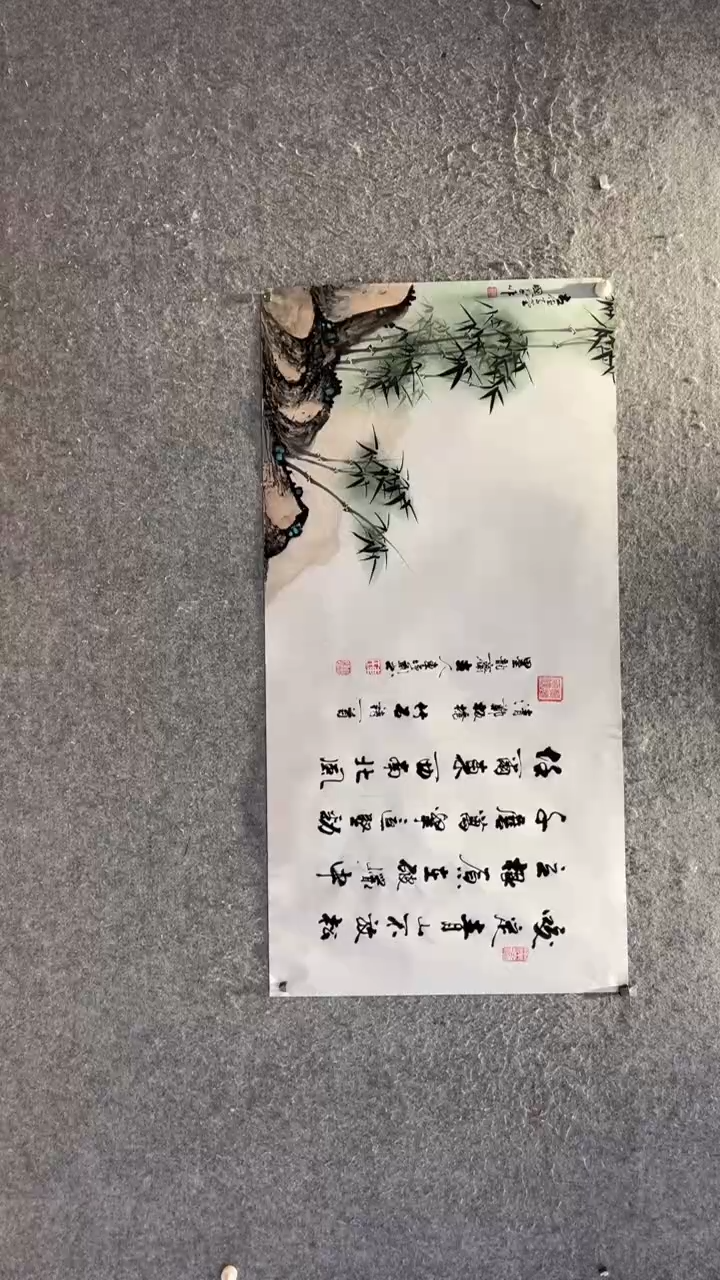 咬定青山不放松
立根原在破巖中
千磨萬擊還堅勁
任爾東西南北風
清鄭板橋竹石詩一首